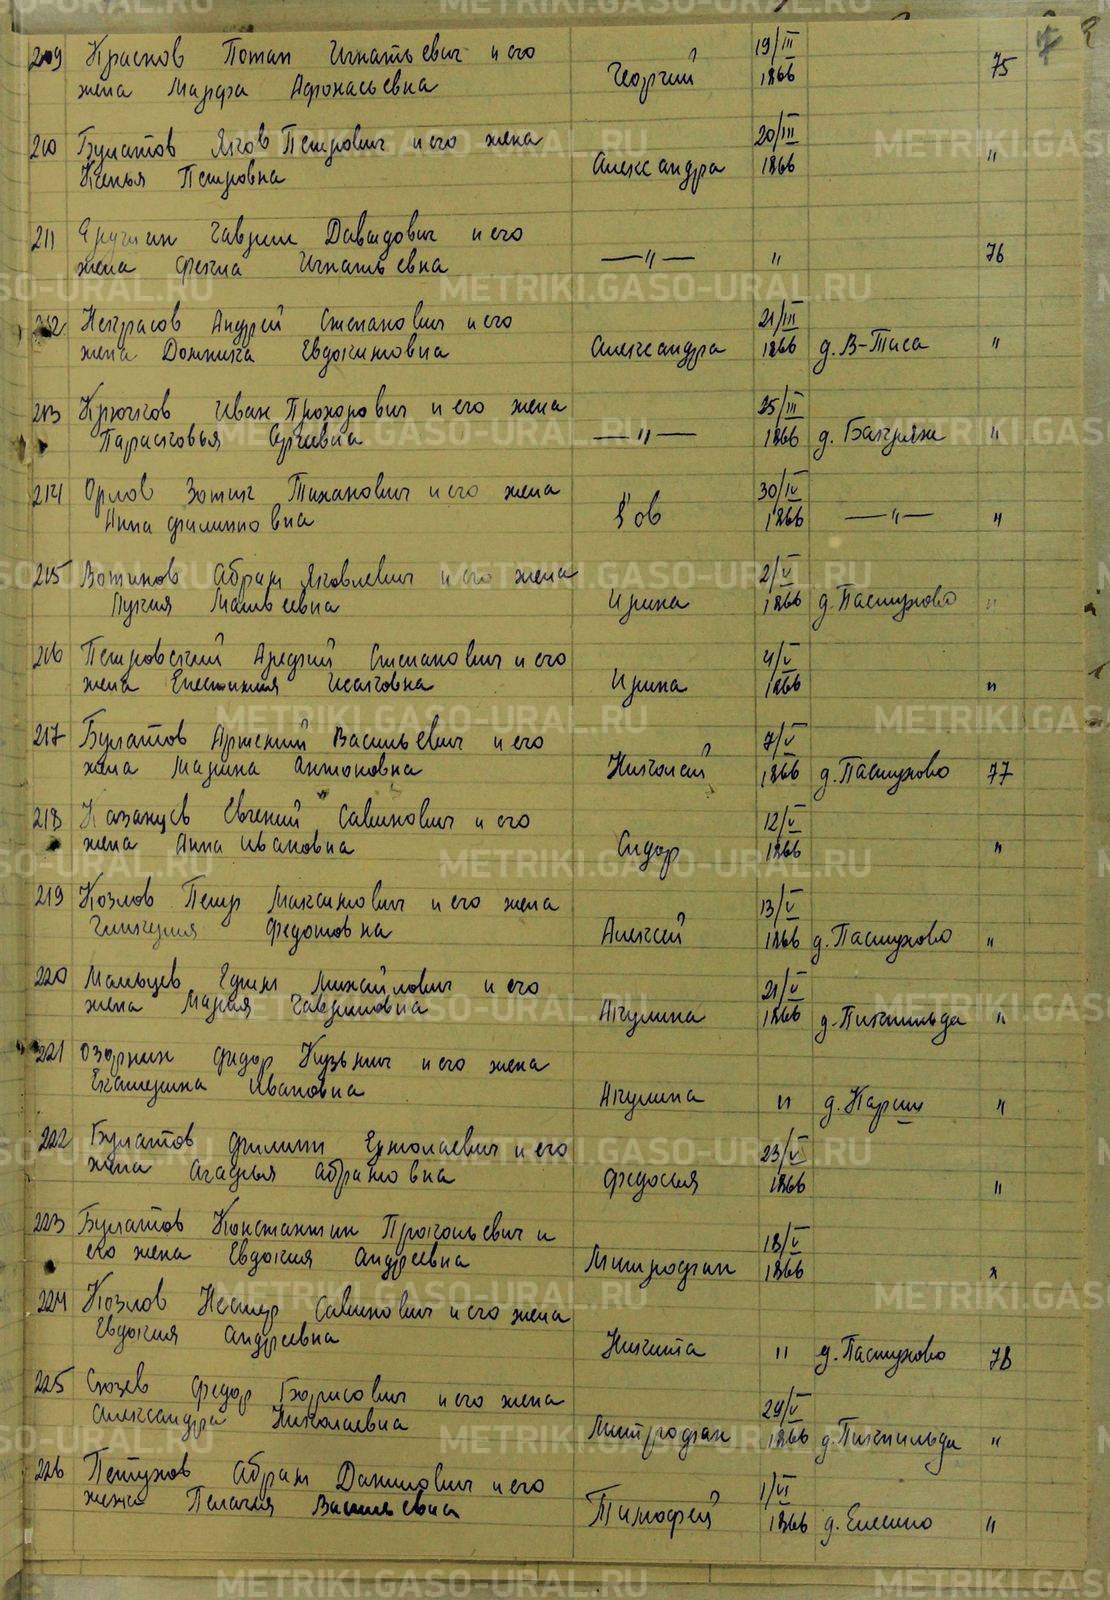 209 Краснов Потап Игнатьевич и его
жена Марфа Афонасьевна
Георгий
19/III
1866
75
210 Булатов Яков Петрович и его жена
Ксенья Петровна
Александра
20/III
1866
"
211 Гаврил Давыдович и его
жена Фекла Игнатьевна
—"—
"
76
212 Некрасов Андрей Степанович и его
жена Домника Евдокимовна
Александра
21/III
1866
д. В-Тиса
"
213 Крючков Иван Прохорович и его жена
Парасковья Сергиевна
—"—
25/III
1866
д. Бакряж
"
214 Орлов Зотик Тиханович и его жена
Анна Филипповна
Иов
30/IV
1866
—"—
"
215 Вотинов Абрам Яковлевич и его жена
Лукия Матвеевна
Ирина
2/V
1866
д. Пастухово
"
216 Петровский Аредий Степанович и его
жена Епестимия Исаковна
Ирина
4/V
1866
"
217 Булатов Арсений Васильевич и его
жена Марина Антоновна
Николай
7/V
1866
д. Пастухово
77
218 Казанцев Евгений Савинович и его
жена Анна Ивановна
Сидор
12/V
1866
"
219 Козлов Петр Максимович и его жена
Гликерия Федотовна
Алексей
13/V
1866
д. Пастухово
"
220 Мальцев Ефим Михайлович и его
жена Мария Гавриловна
Акулина
21/V
1866
д. Пикильда
"
221 Озорнин Фидор Кузьмич и его жена
Екатерина Ивановна
Акулина
"
д. Карши
"
222 Булатов Филипп Ермолаевич и его
жена Агафья Абрамовна
Федосия
23/V
1866
"
223 Булатов Константин Прокопьевич и
его жена Евдокия Андреевна
Митрофан
18/V
1866
"
224 Козлов Нестер Савинович и его жена
Евдокия Андреевна
Никита
"
д. Пастухово
78
225 Сюзев Федор Борисович и его жена
Александра Николаевна
Митрофан
29/V
1866
д. Пикпильда
"
226 Петухов Абрам Данилович и его
жена Пелагия Васильевна
Тимофей
1/VI
1866
д. Емешно
"
METRIKI.GASO-URAL.RU